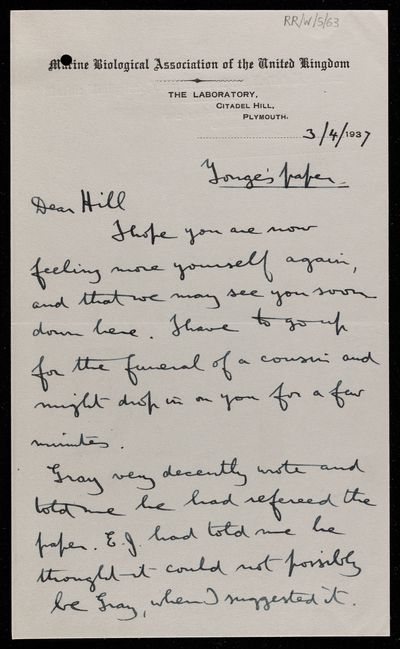 RR/W/5/63
Marine Biological Association of the United Kingdom
THE LABORATORY,
CITADEL HILL,
PLYMOUTH.
3/4/1937
Yonge's paper.
Dear Hill
I hope you are now
feeling more yourself again,
and that we may see you soon
down here. I have to go up
for the funeral of a cousin and
might drop in on you for a few
minutes.
Gray very decently wrote and
told me he had refereed the
paper. E.J. had told me he
thought it could not possibly
be Gray, when I suggested it.